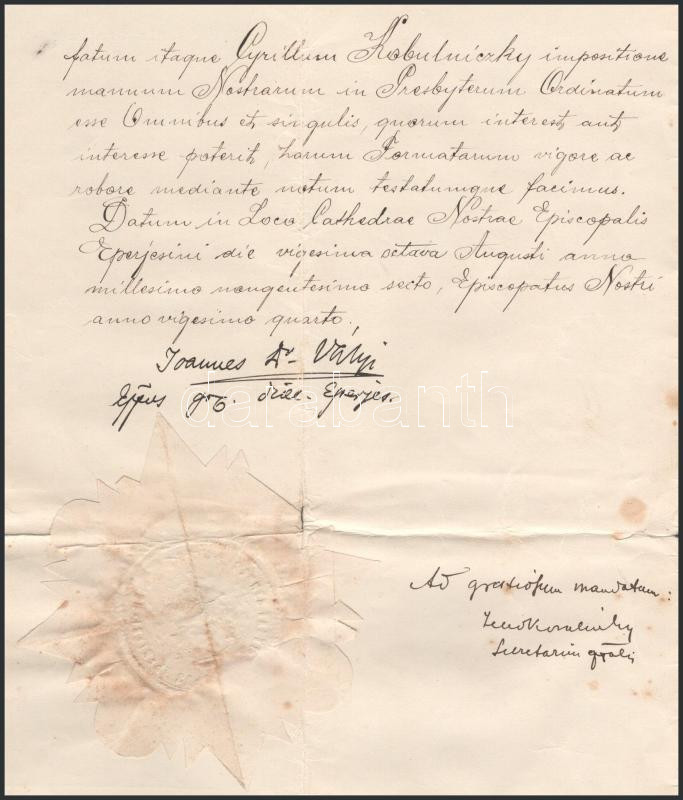 fatum itaque Cyrillum Kobulniczky impositione
manuum Nostrarum in Presbyterum Ordinatum
esse Omnibus et singulis, quorum interest aut
interesse poterit, harum Formatarum vigore ac
robore mediante notum testatumque facimus.
Datum in Loco Cathedrae Nostrae Episcopalis
Eperjesini die vigesima octava Augusti anno
millesimo nongentesimo sexto, Episcopatus Nostri
anno vigesimo quarto,
Joannes Dr Vályi
Eppus gr. dioec. Eperjes.
darabanth
Ad gratiosum mandatum:
Secretarius